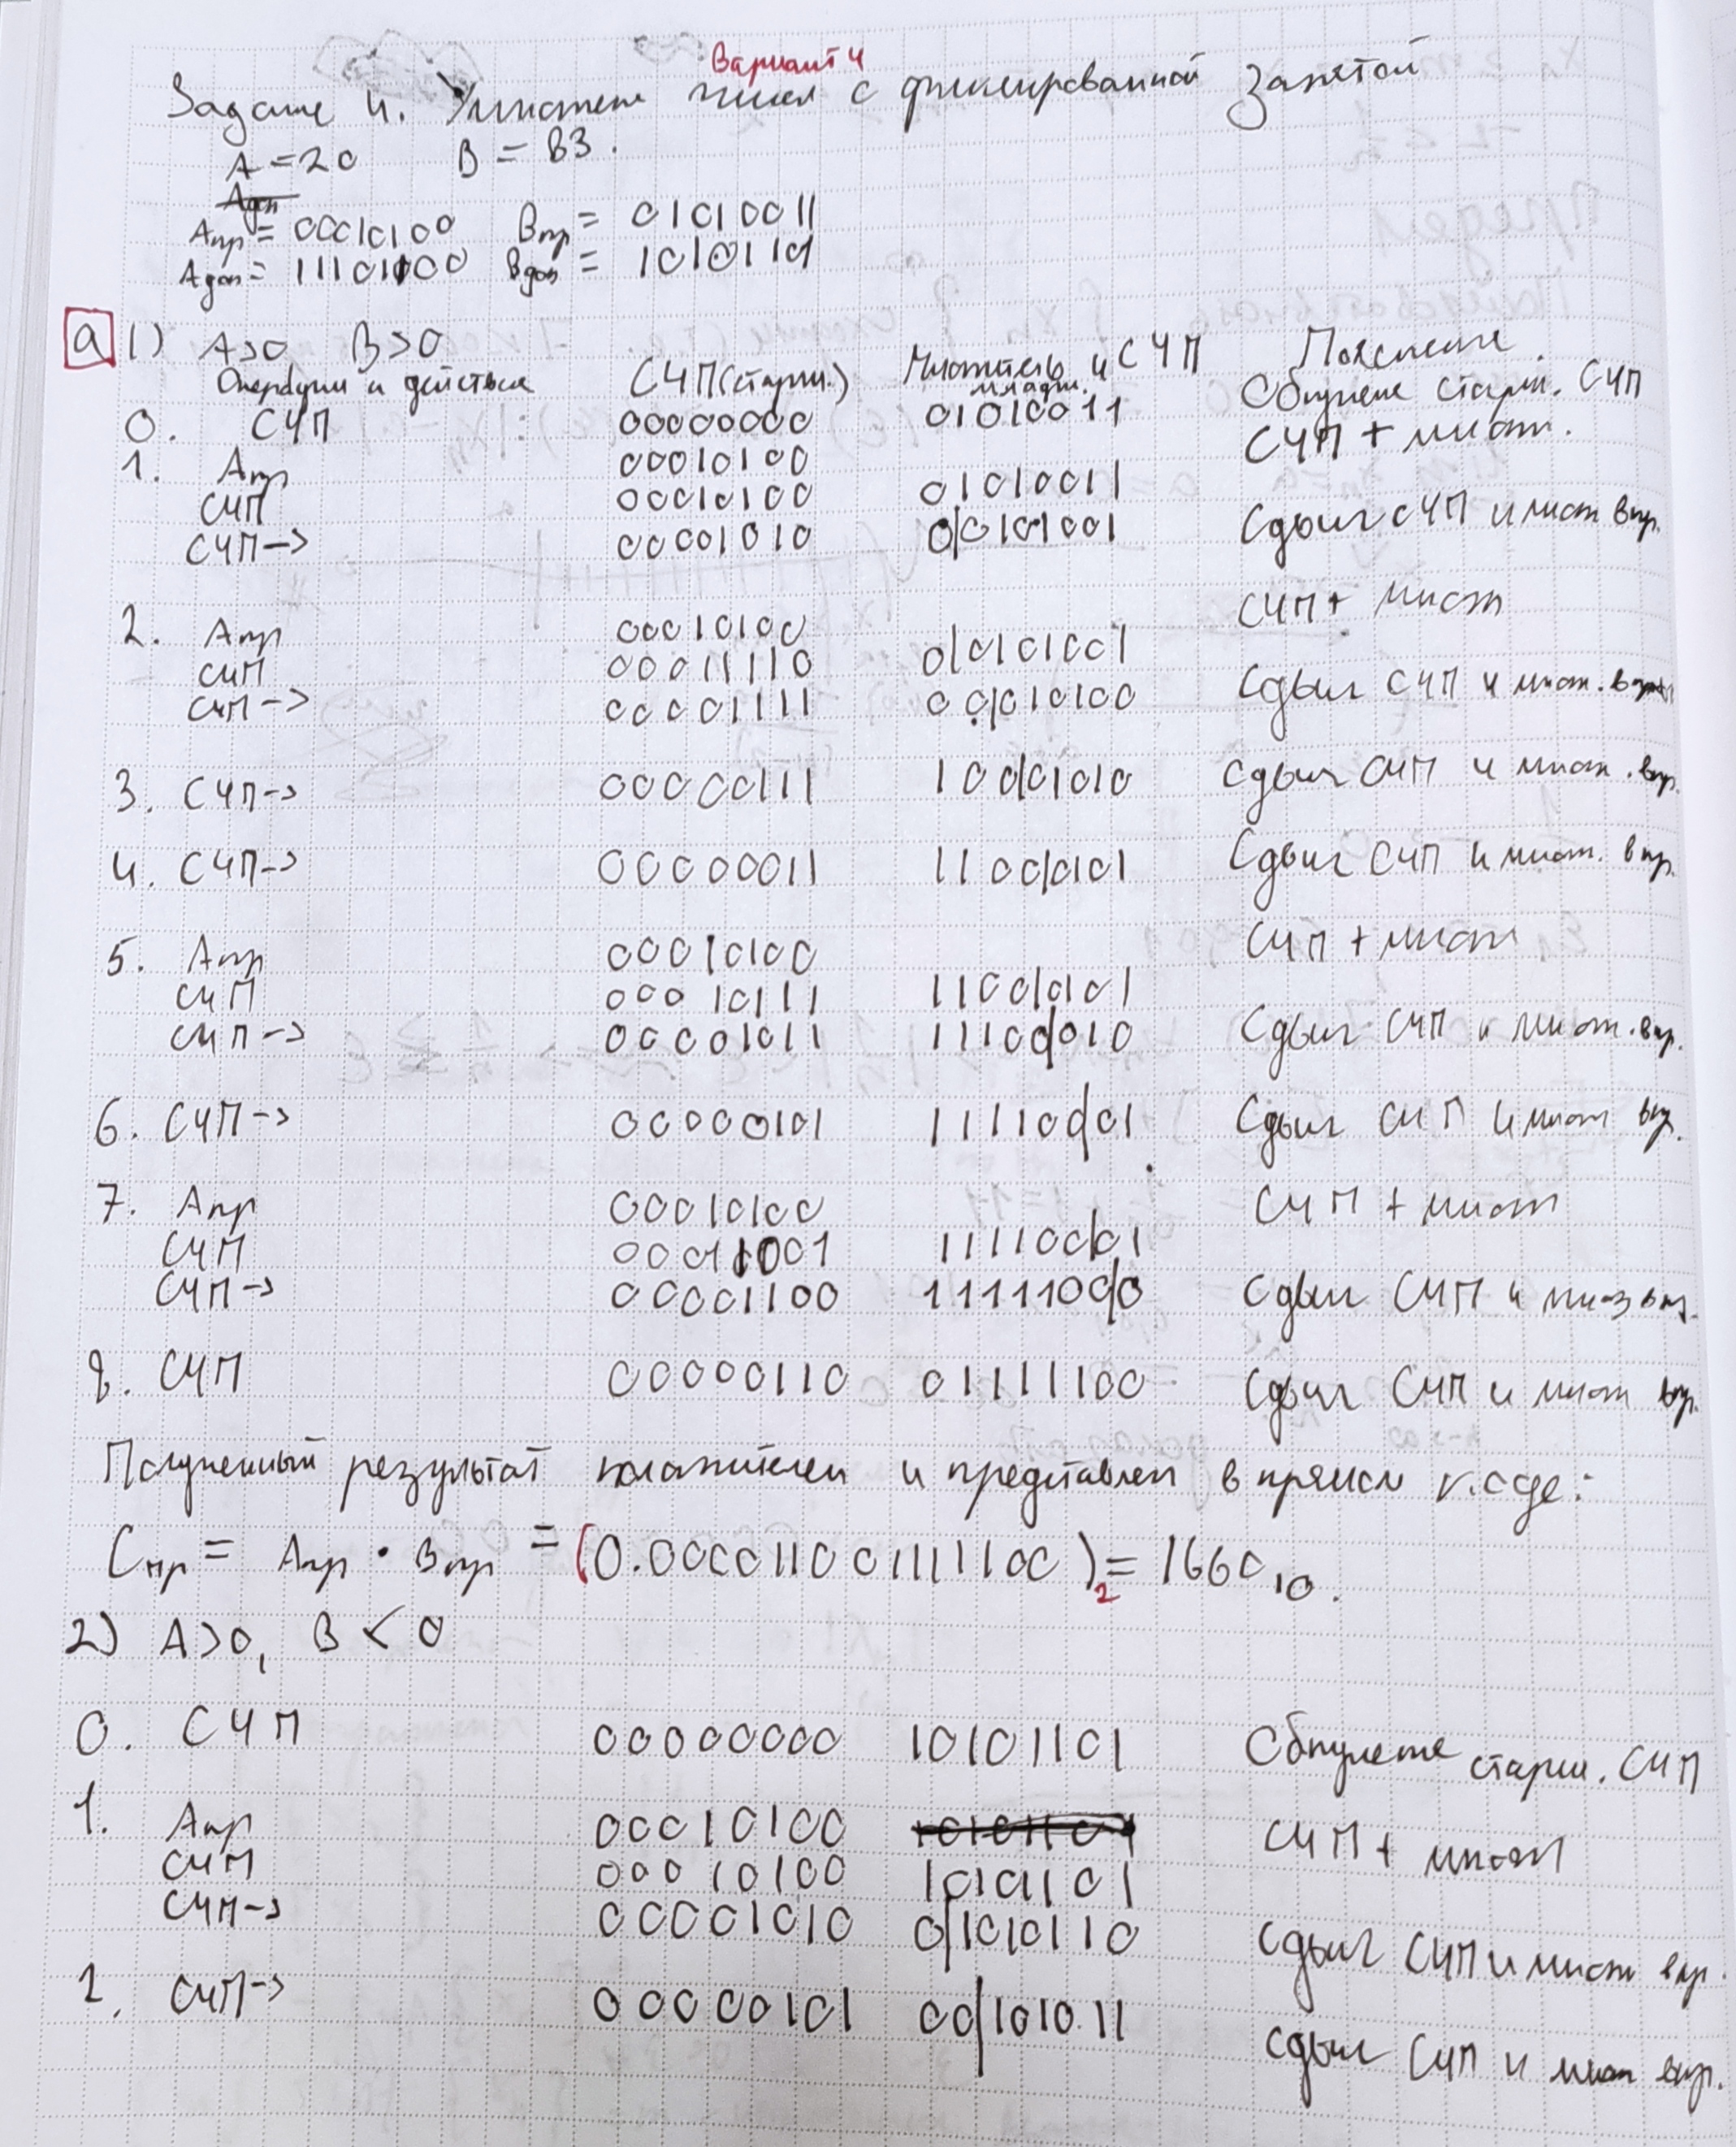 Вариант 4
Задание 4. Умножение чисел с фиксированной запятой
A = 20 B = 83.
Aдоп
Aпр = 00010100 Bпр = 01010011
Aдоп = 11101100 Bдоп = 10101101
а 1) A>0 B>0
Операции и действия СЧП(старш.) Множитель и СЧП младш. Пояснение
0. СЧП 00000000 01010011 Обнуление старш. СЧП
1. Aпр 00010100 СЧП + множ.
СЧП 00010100 01010011
СЧП-> 00001010 0|0101001 Сдвиг СЧП и множ впр.
2. Aпр 00010100 СЧП + множ
СЧП 00011110 0|0101001
СЧП-> 00001111 00|010100 Сдвиг СЧП и множ. впр
3. СЧП-> 00000111 100|01010 Сдвиг СЧП и множ. впр.
4. СЧП-> 00000011 1100|0101 Сдвиг СЧП и множ. впр.
5. Aпр 00010100 СЧП + множ
СЧП 00010111 1100|0101
СЧП-> 00001011 11100|010 Сдвиг СЧП и множ. впр.
6. СЧП-> 00000101 111100|01 Сдвиг СЧП и множ впр.
7. Aпр 00010100 СЧП + множ
СЧП 00011001 111100|01
СЧП-> 00001100 1111100|0 Сдвиг СЧП и
8. СЧП 00000110 01111100 Сдвиг СЧП и множ впр.
Полученный результат положителен и представлен в прямом коде:
Cпр = Aпр · Bпр = (0.000011001111100)2 = 1660 10.
2) A>0, B < 0
0. СЧП 00000000 10101101 Обнуление старш. СЧП
1. Aпр 00010100 СЧП + множ
СЧП 00010100 10101101
СЧП-> 00001010 0|1010110 Сдвиг СЧП и множ впр.
2. СЧП-> 00000101 00|101011 Сдвиг СЧП и множ впр.